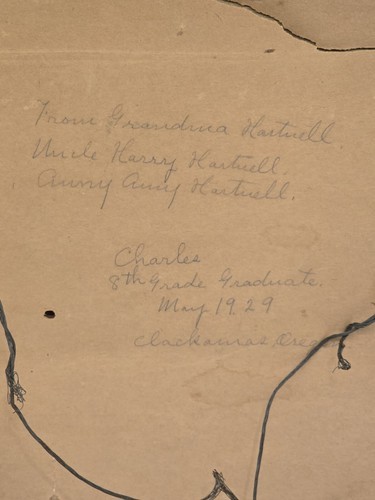 From Grandma Hartnell.
Uncle Harry Hartnell.
Anny Amy Hartnell.
Charles
8th Grade Graduate.
May 1929
Clackamas, Oreg